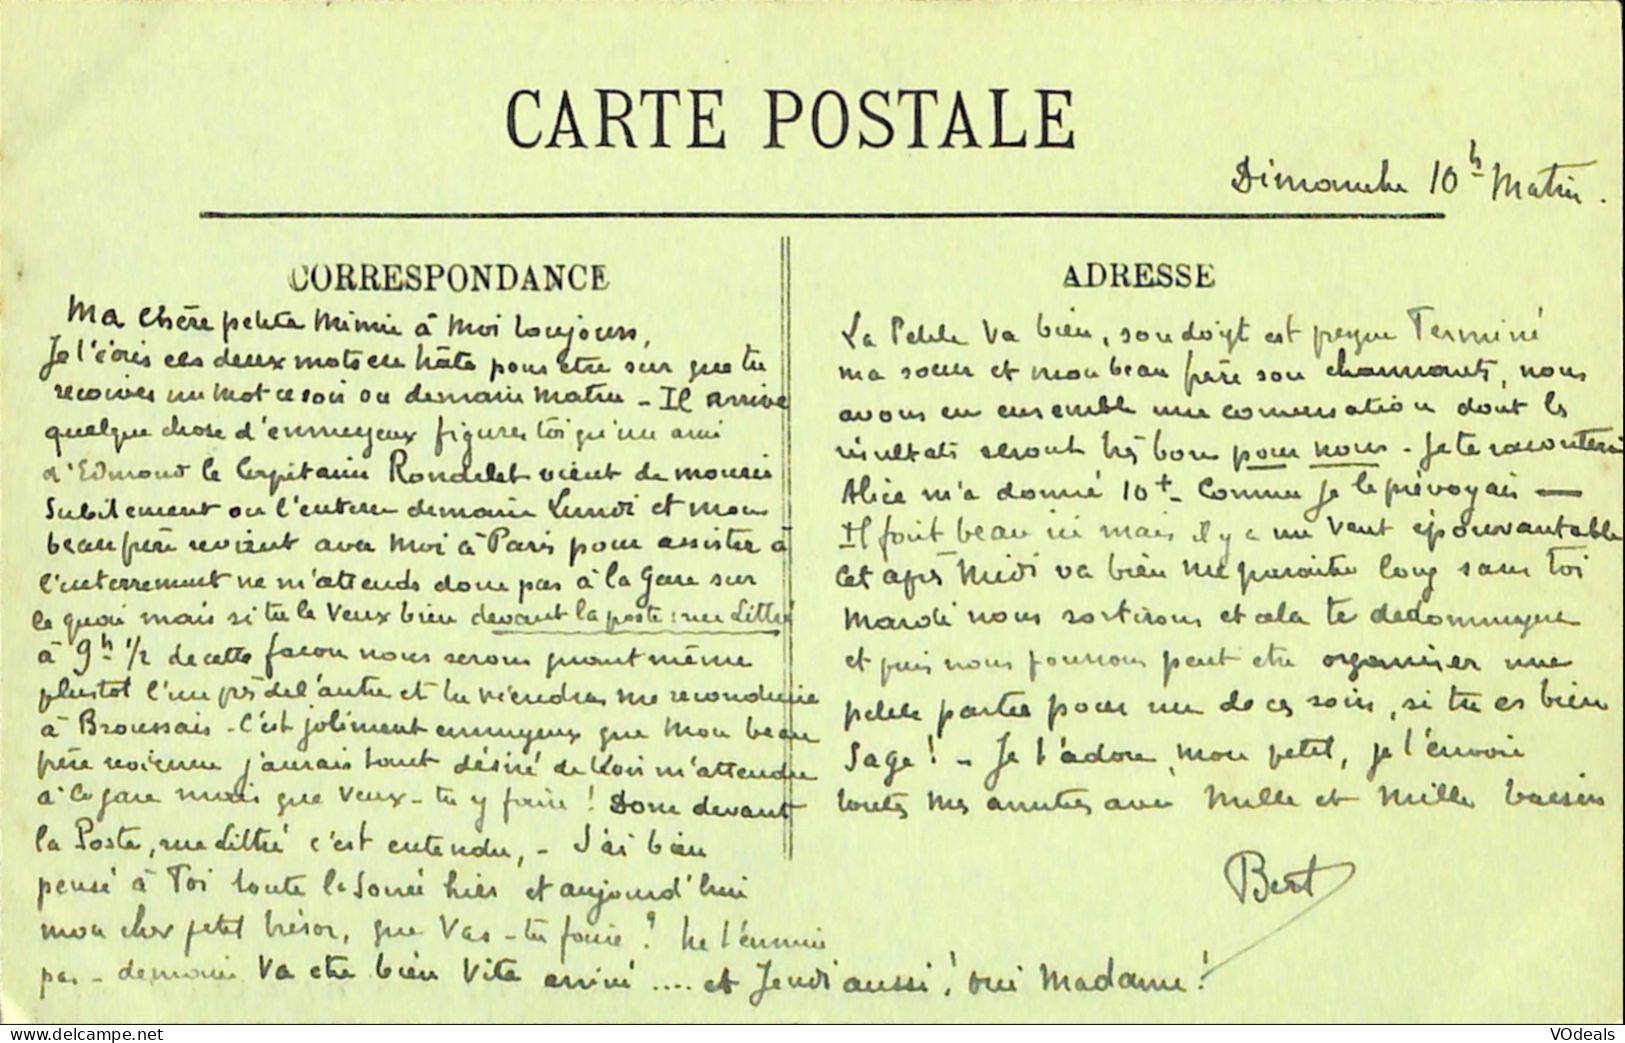 CARTE POSTALE
Dimanche 10h Matin.
CORRESPONDANCE
Ma chère petite Mimie à Moi toujours,
Je t'écris ces deux mots en hâte pour être sur que tu
reçoives un mot ce soir ou demain matin - Il arrive
quelque chose d'ennuyeux figures toi qu'un ami
d'Edmond le Capitaine Rondelet vient de mourir
subitement on l'enterre demain Lundi et mon
beau père revient avec Moi à Paris pour assister à
l'enterrement ne m'attends donc pas à la Gare sur
le quai mais si tu le veux bien devant la poste : rue Littré
à 9h 1/2 de cette façon nous serons quant même
plustot l'un près de l'autre et tu viendras me reconduire
à Broussais - C'est joliment ennuyeux que Mon beau
père revienne j'aurais tant désiré de te voir m'attendre
à la gare mais que veux-tu y faire ! Donc devant
la Poste, rue Littré c'est entendu, - J'ai bien
pensé à Toi toute la Soirée hier et aujourd'hui
mon cher petit trésor, que Vas-tu faire ? ne t'ennuie
pas - demain Va etre bien Vite arrivé .... et Jeudi aussi ! oui Madame !
ADRESSE
La Petite va bien, son doigt est presque Terminé
ma soeur et mon beau frère son charmants, nous
avons eu ensemble une conversation dont les
résultats seront très bons pour nous - Je te raconterai
Alice m'a donné 10+ - Comme je le prévoyais —
Il fait beau ici mais il y a un Vent épouvantable
Cet après Midi va bien me paraitre long sans Toi
Mardi nous sortirons et cela te dedommagera
et puis nous pourrons peut etre organiser une
petite partie pour un de ces soirs, si tu es bien
Sage ! - Je t'adore, mon petit, je t'envoie
toutes mes amitiés avec Mille et Mille baisers
Bert
delcampe.net
VOdeals